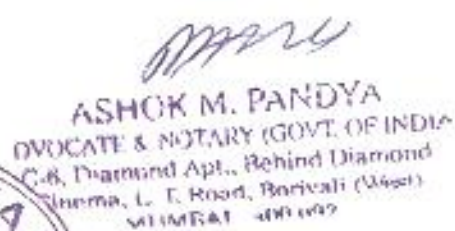 ASHOK M. PANDYA
DVOCATE & NOTARY (GOVT. OF INDIA
C-8, Diamond Apt., Behind Diamond
Cinema, L. T. Road, Borivali (West)
MUMBAI